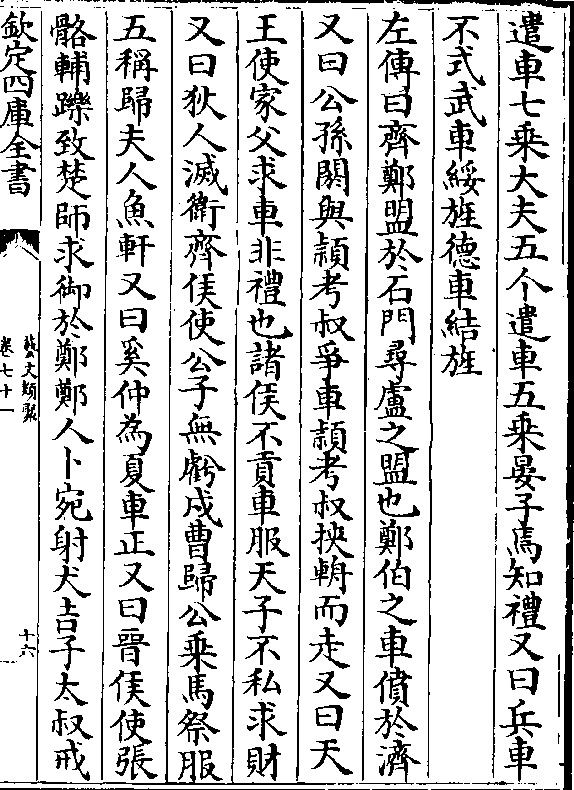 遣車七乘大夫五个遣車五乘晏子焉知禮又曰兵車
不式武車綏旌德車結旌
左傳曰齊鄭盟於石門尋盧之盟也鄭伯之車僨於濟
又曰公孫閼與頴考叔爭車頴考叔挾輈而走又曰天
王使家父求車非禮也諸侯不貢車服天子不私求財
又曰狄人滅衛齊侯使公子無虧戍曹歸公乘馬祭服
五稱歸夫人魚軒又曰奚仲為夏車正又曰晉侯使張
骼輔躒致楚師求御於鄭鄭人卜宛射犬吉子太叔戒
欽定四庫全書
藝文類聚
卷七十一
十六